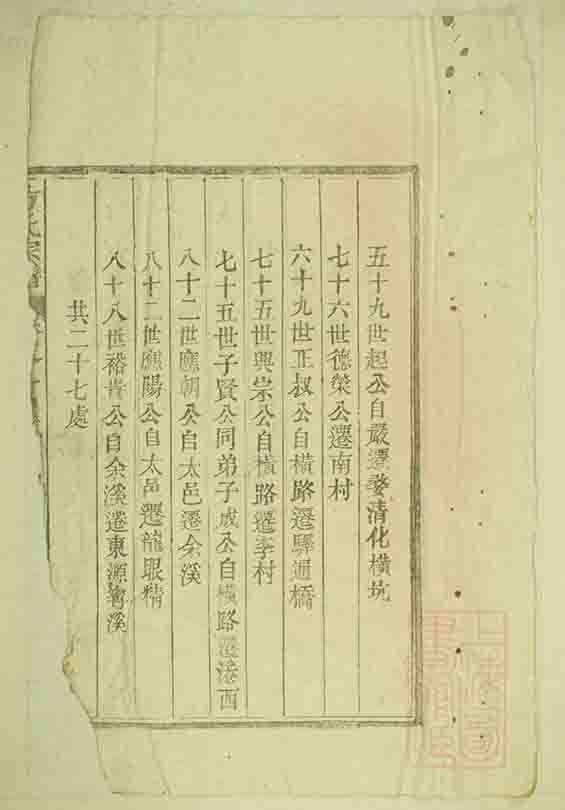 五十九世起公自嚴遷婺清化橫坑
七十六世德榮公遷南村
六十九世正叔公自橫路遷驛通橋
七十五世興宗公自橫路遷李村
七十五世子賢公同弟子成公自橫路遷港西
八十二世應朝公自太邑遷余溪
八十二世應陽公自太邑遷龍眼精
八十八世裕公自余溪遷東源溪
共二十七處
方氏宗譜